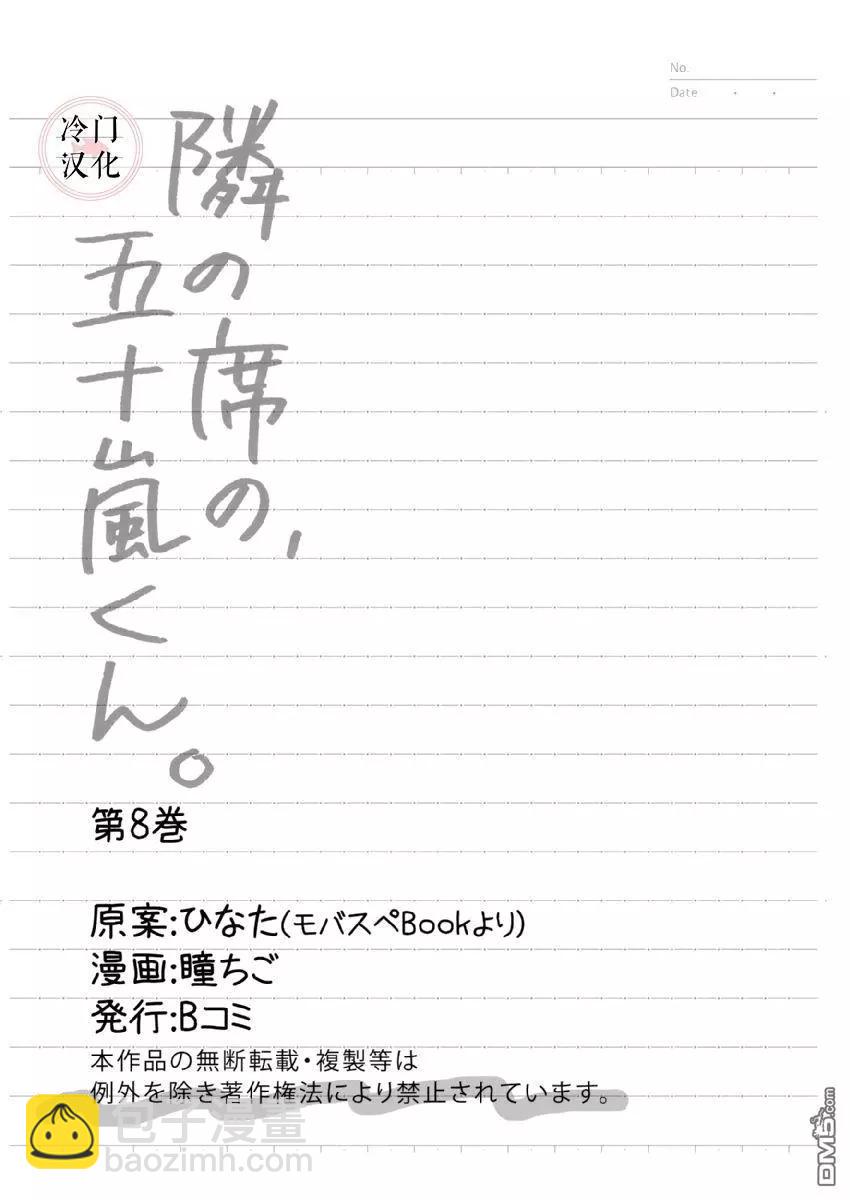 No.
Date
冷门
汉化
隣の席の、
五十嵐くん。
第8巻
原案:ひなた(モバスペBookより)
漫画:瞳ちご
発行:Bコミ
本作品の無断転載・複製等は
例外を除き著作権法により禁止されています。
包子漫畫
baozimh.com
DM5.com